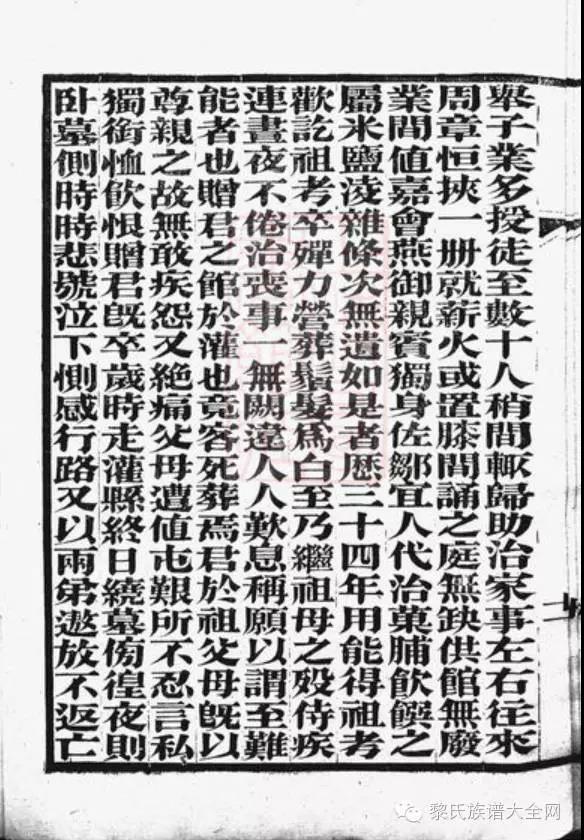 舉子業多授徒至數十人稍間輒歸助治家事左右往來
周章恒挾一册就薪火或置膝間誦之庭無缺供館無廢
業間值嘉會燕御親賓獨身佐鄒宜人代治菓脯飲饌之
屬米鹽淩雜條次無遺如是者歷三十四年用能得祖考
歡訖祖考卒殫力營葬鬚髮爲白至乃繼祖母之歿侍疾
連晝夜不倦治喪事一無闕違人人歎息稱願以謂至難
能者也贈君之館於灌也竟客死葬焉君於祖父母旣以
尊親之故無敢疾怨又絶痛父母遭值屯艱所不忍言私
獨銜恤飲恨贈君旣卒歲時走灌縣終日繞墓徬徨夜則
卧墓側時時悲號泣下惻感行路又以兩弟遨放不返亡
黎氏族谱大全网